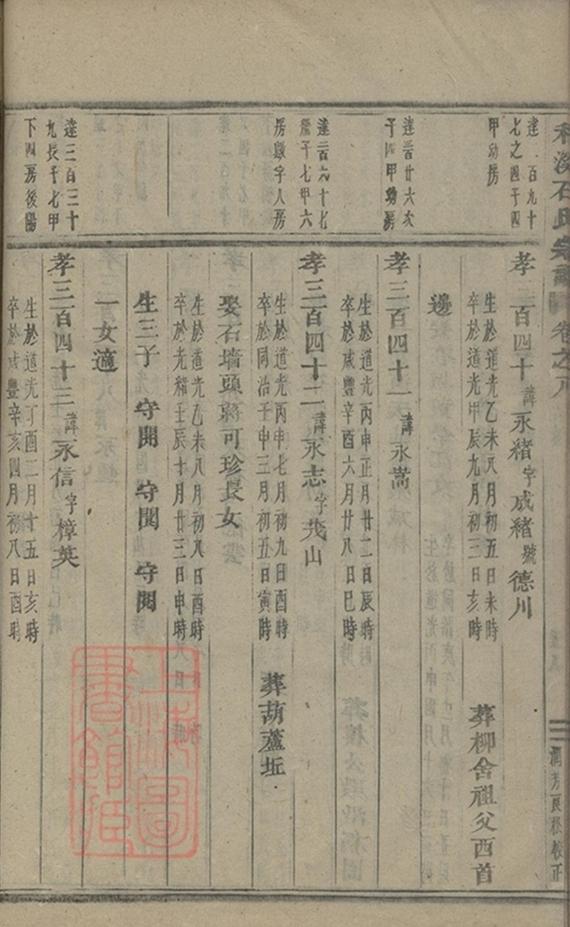 石氏宗譜
卷之八
校正
達一百九十
七之四千四
甲幼房
孝三百四十諱永緒字成緒號德川
生於道光乙未八月初五日未時
卒於道光甲辰九月初三日亥時
葬柳舍祖父西首
達二百廿六次
千四甲幼房
邊
孝三百四十一諱永嵩
生於道光丙申正月廿二日辰時
卒於咸豐辛酉六月廿八日巳時
達二百六十七
千七甲六
房啟字人房
孝三百四十二諱永志字茂山
生於道光丙申七月初九日酉時
卒於同治壬申三月初五日寅時
葬葫蘆坵
娶石墻頭郭可珍長女
生於道光乙未八月初八日酉時
卒於光緒壬辰十月廿三日申時
生三子 守開 守閏 守閱
一女適
達三百三十
九長千七甲
下四房後陽
孝三百四十三諱永信字樟英
生於道光丁酉二月十五日亥時
卒於咸豐辛亥四月初八日酉時
上海圖書館藏